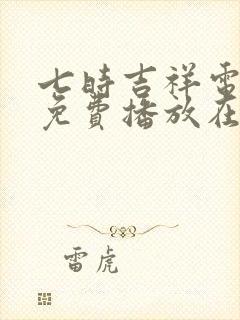 七時吉祥電
免費播放在
雷虎